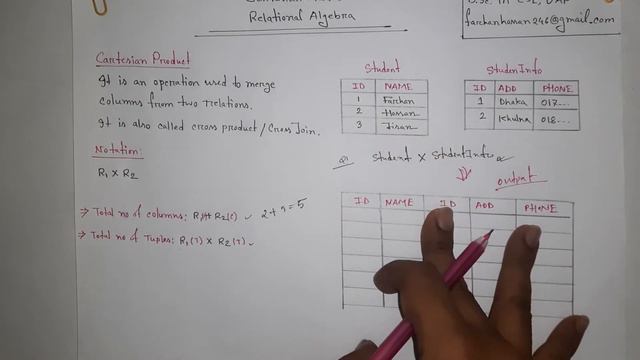 Relational Algebra
B.Sc. in CSE, UAP
farhanhaman246@gmail.com
Cartesian Product
It is an operation used to merge
columns from two relations.
It is also called cross product/Cross Join.
Notation:
R1 X R2
→ Total no of columns: R1(C) + R2(C) 2+3=5
→ Total no of Tuples: R1(T) X R2(T)
Student
ID NAME
1 Farhan
2 Hassan
3 Jisan
StudenInfo
ID ADD PHONE
1 Dhaka 017...
2 Khulna 018...
Q1 Student X StudentInfo
output
ID NAME ID ADD PHONE